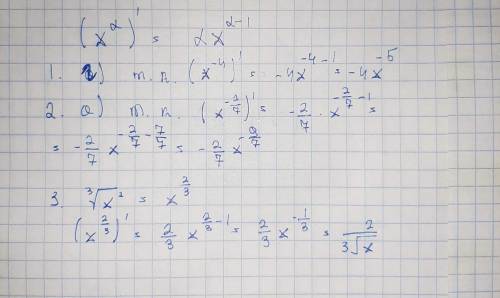 (x^α)' = αx^(α-1)
1. б) т.к. (x^(-4))' = -4x^(-4-1) = -4x^(-5)
2. а) т.к. (x^(-2/7))' = -2/7 · x^(-2/7-1) =
= -2/7 x^(-2/7-7/7) = -2/7 x^(-9/7)
3. ∛x² = x^(2/3)
(x^(2/3))' = 2/3 x^(2/3-1) = 2/3 x^(-1/3) = 2/(3√x)